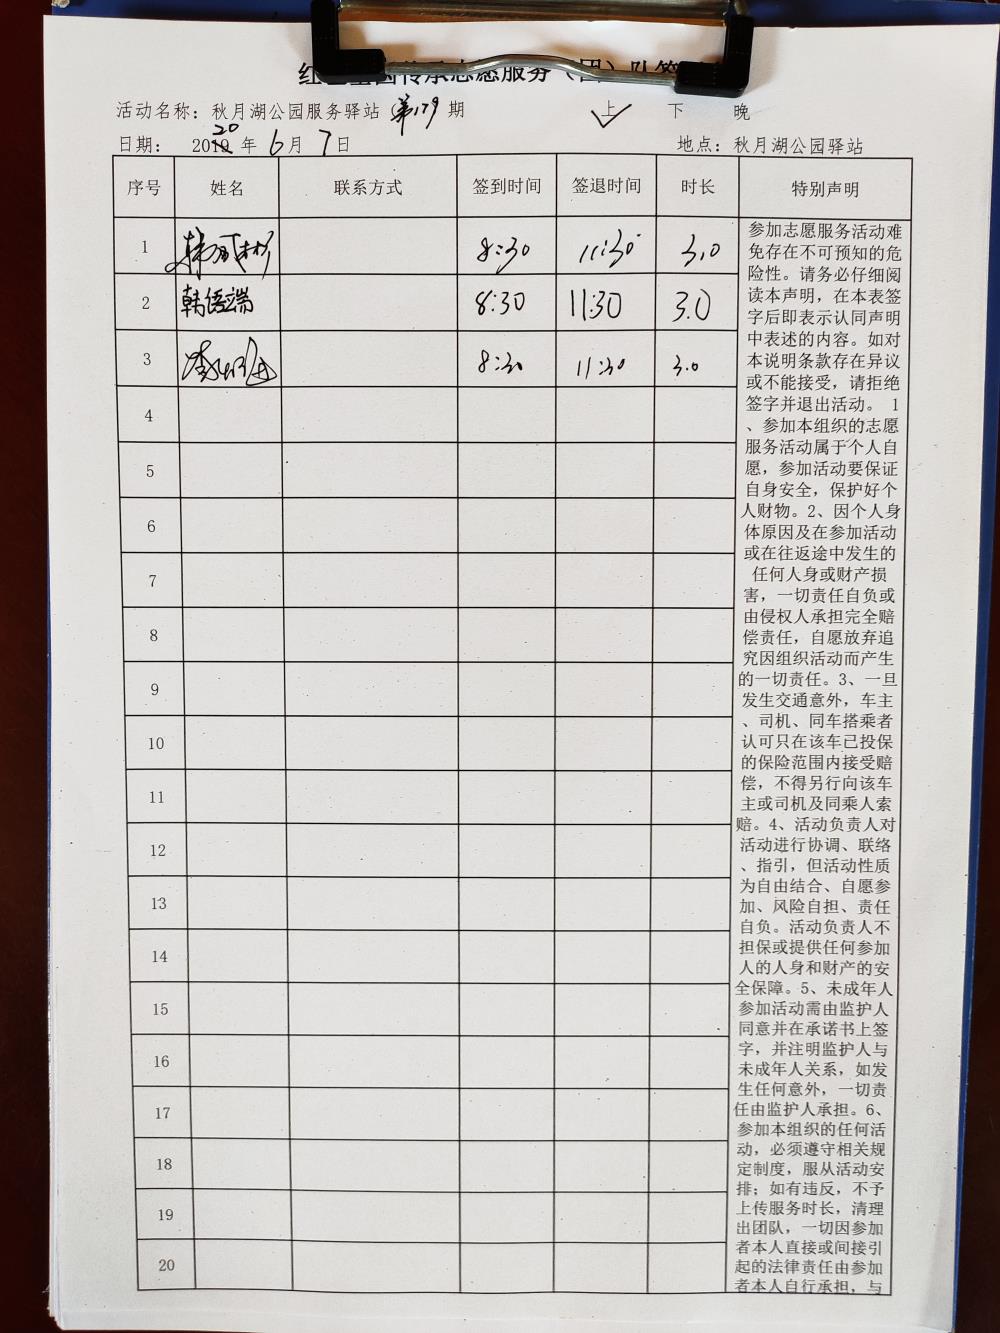 传承志愿服务（团）队签
活动名称：秋月湖公园服务驿站 第179期 上 下 晚
日期： 2020年6月7日 地点：秋月湖公园驿站
序号 姓名 联系方式 签到时间 签退时间 时长 特别声明
1 8:30 11:30 3.0
2 韩语端 8:30 11:30 3.0
3 8:30 11:30 3.0
4
5
6
7
8
9
10
11
12
13
14
15
16
17
18
19
20
参加志愿服务活动难
免存在不可预知的危
险性。请务必仔细阅
读本声明，在本表签
字后即表示认同声明
中表述的内容。如对
本说明条款存在异议
或不能接受，请拒绝
签字并退出活动。 1
、参加本组织的志愿
服务活动属于个人自
愿，参加活动要保证
自身安全，保护好个
人财物。2、因个人身
体原因及在参加活动
或在往返途中发生的
任何人身或财产损
害，一切责任自负或
由侵权人承担完全赔
偿责任，自愿放弃追
究因组织活动而产生
的一切责任。3、一旦
发生交通意外，车主
、司机、同车搭乘者
认可只在该车已投保
的保险范围内接受赔
偿，不得另行向该车
主或司机及同乘人索
赔。4、活动负责人对
活动进行协调、联络
、指引，但活动性质
为自由结合、自愿参
加、风险自担、责任
自负。活动负责人不
担保或提供任何参加
人的人身和财产的安
全保障。5、未成年人
参加活动需由监护人
同意并在承诺书上签
字，并注明监护人与
未成年人关系，如发
生任何意外，一切责
任由监护人承担。6、
参加本组织的任何活
动，必须遵守相关规
定制度，服从活动安
排；如有违反，不予
上传服务时长，清理
出团队，一切因参加
者本人直接或间接引
起的法律责任由参加
者本人自行承担，与